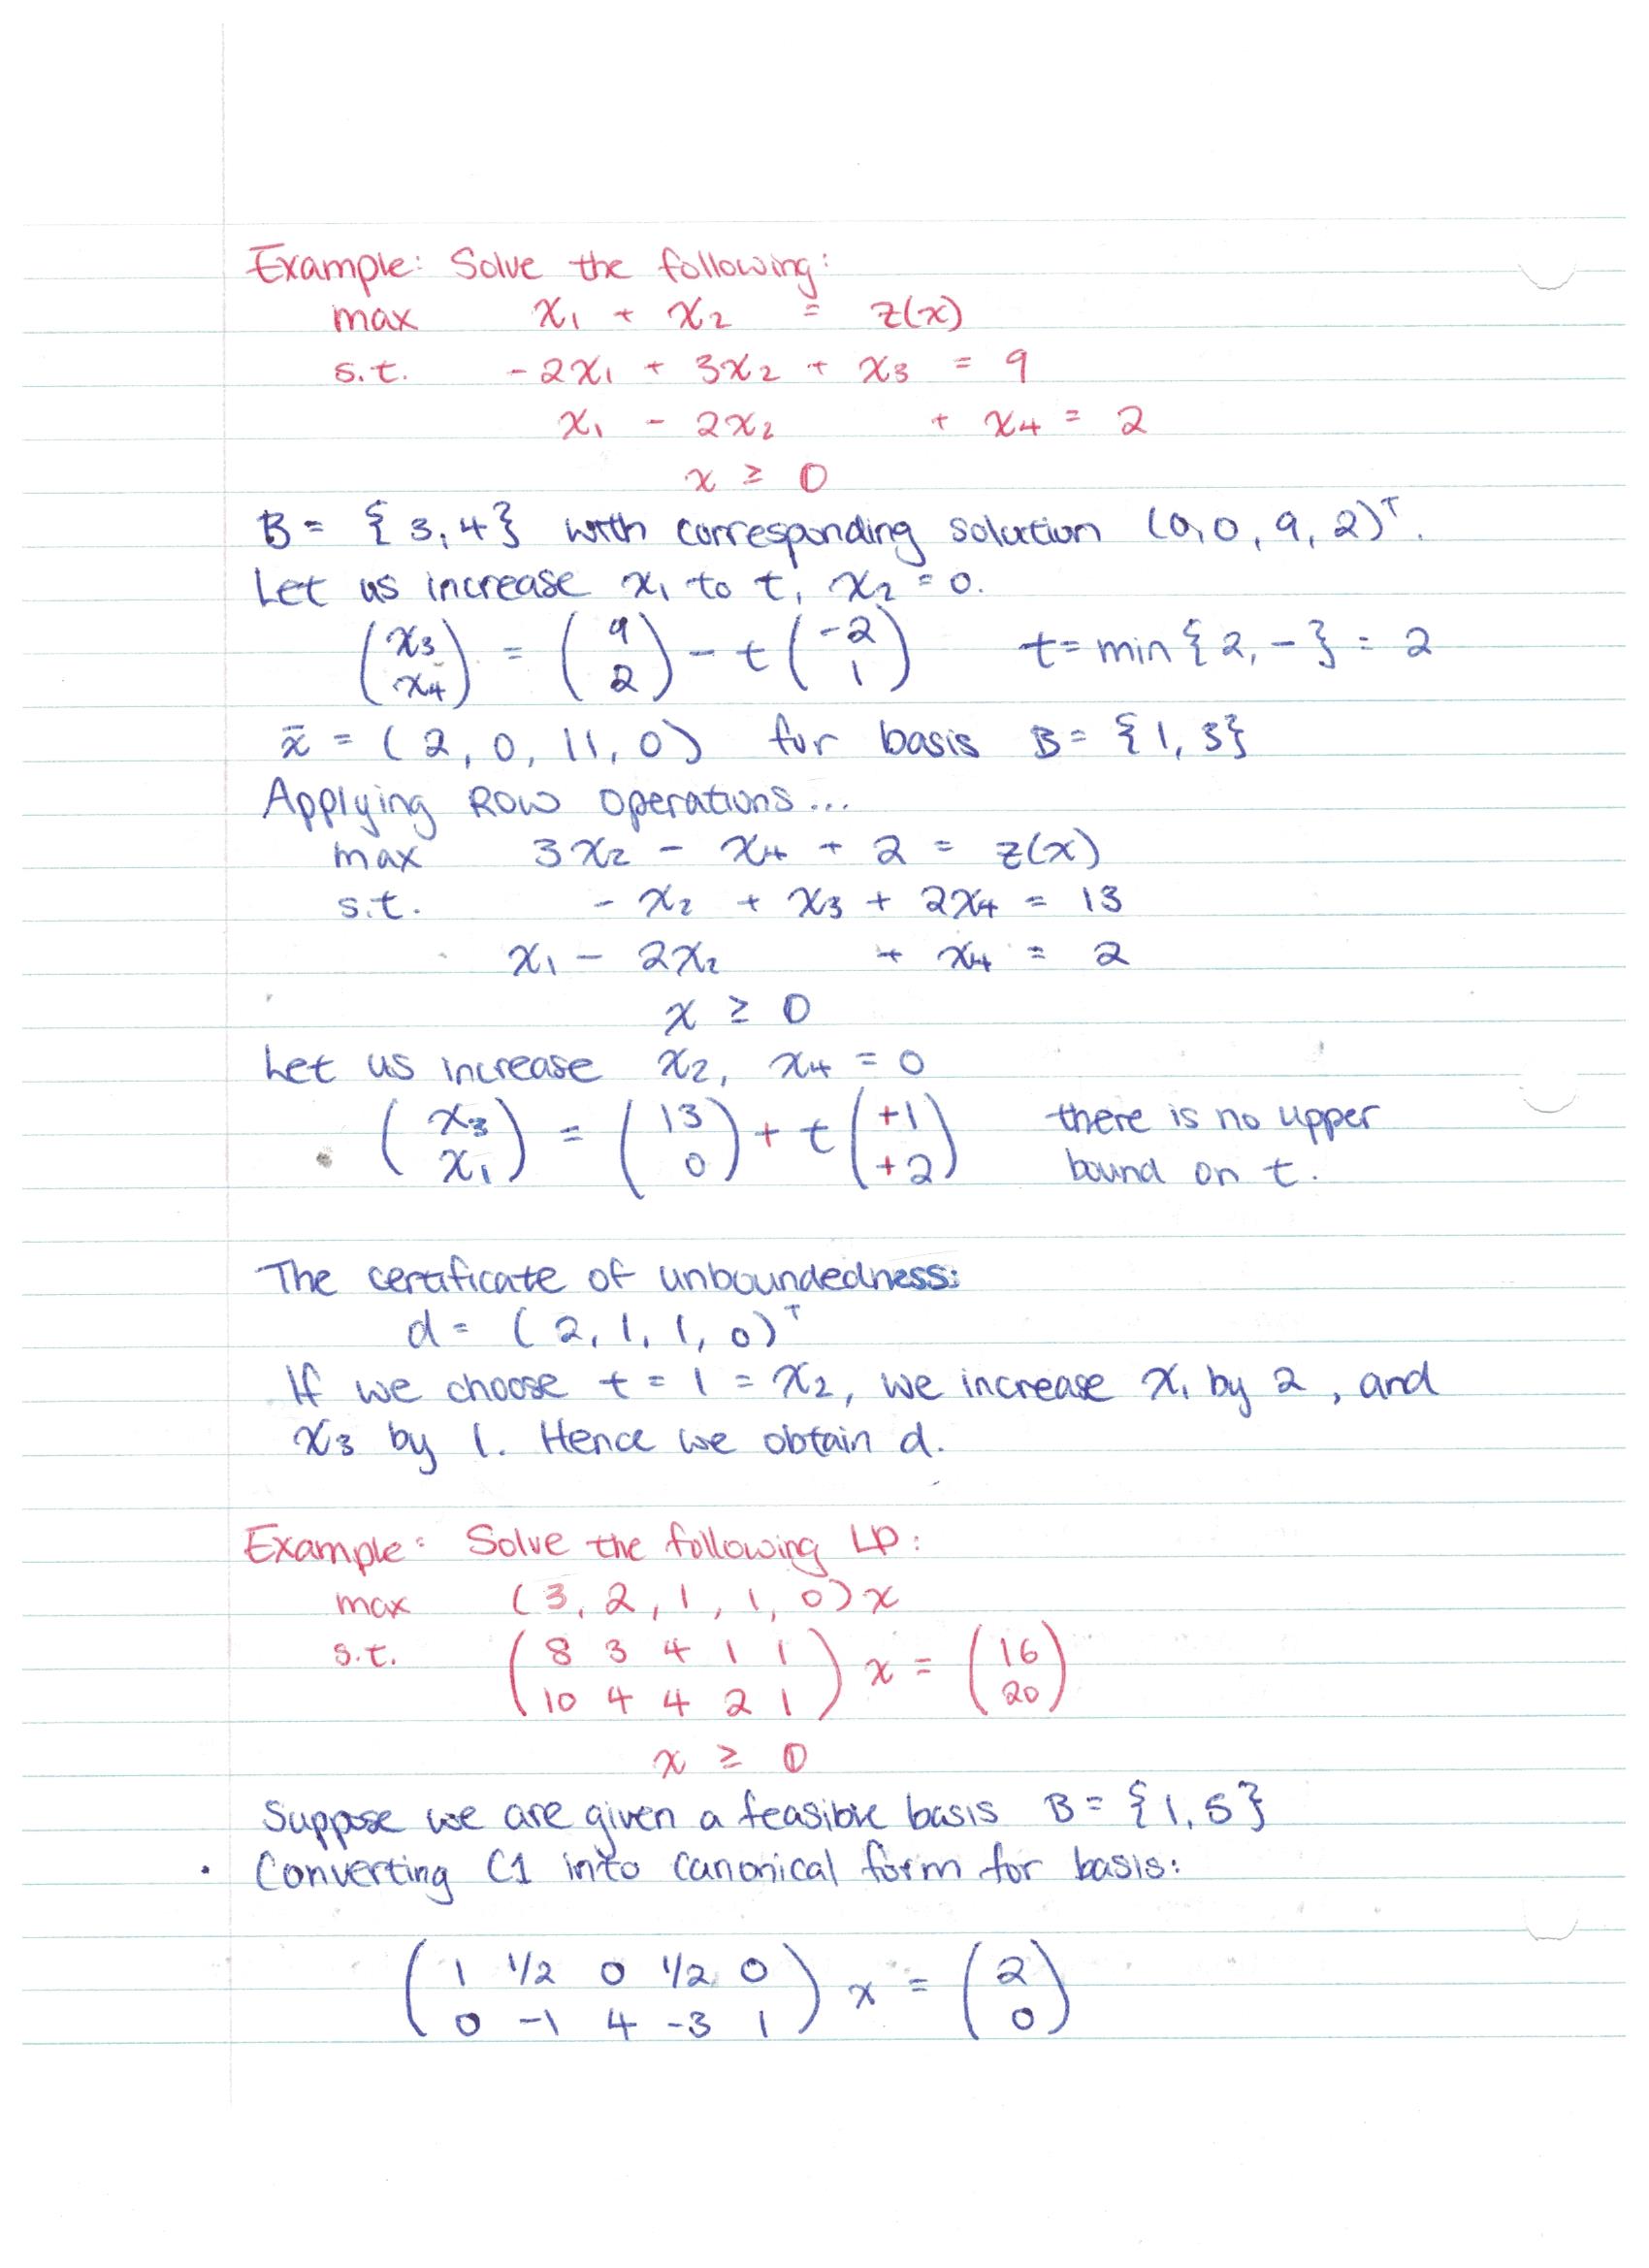 Example: Solve the following:
max x₁ + x₂ = z(x)
s.t. -2x₁ + 3x₂ + x₃ = 9
x₁ - 2x₂ + x₄ = 2
x ≥ 0
B = {3,4} with corresponding solution (0,0,9,2)ᵀ.
Let us increase x₁ to t, x₂ = 0.
(x₃ x₄) = (9 2) - t(-2 1) t = min{2, -} = 2
x̄ = (2, 0, 11, 0) for basis B = {1, 3}
Applying Row operations...
max 3x₂ - x₄ + 2 = z(x)
s.t. - x₂ + x₃ + 2x₄ = 13
x₁ - 2x₂ + x₄ = 2
x ≥ 0
Let us increase x₂, x₄ = 0
(x₃ x₁) = (13 0) + t(+1 +2) there is no upper
bound on t.
The certificate of unboundedness:
d = (2, 1, 1, 0)ᵀ
If we choose t = 1 = x₂, we increase x₁ by 2, and
x₃ by 1. Hence we obtain d.
Example: Solve the following LP:
max (3, 2, 1, 1, 0)x
s.t. (8 3 4 1 1
10 4 4 2 1) x = (16 20)
x ≥ 0
Suppose we are given a feasible basis B = {1, 5}
• Converting C1 into canonical form for basis:
(1 1/2 0 1/2 0
0 -1 4 -3 1) x = (2 0)